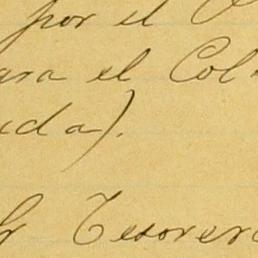 por el
ara el Col
uda).
Sr Tesorero